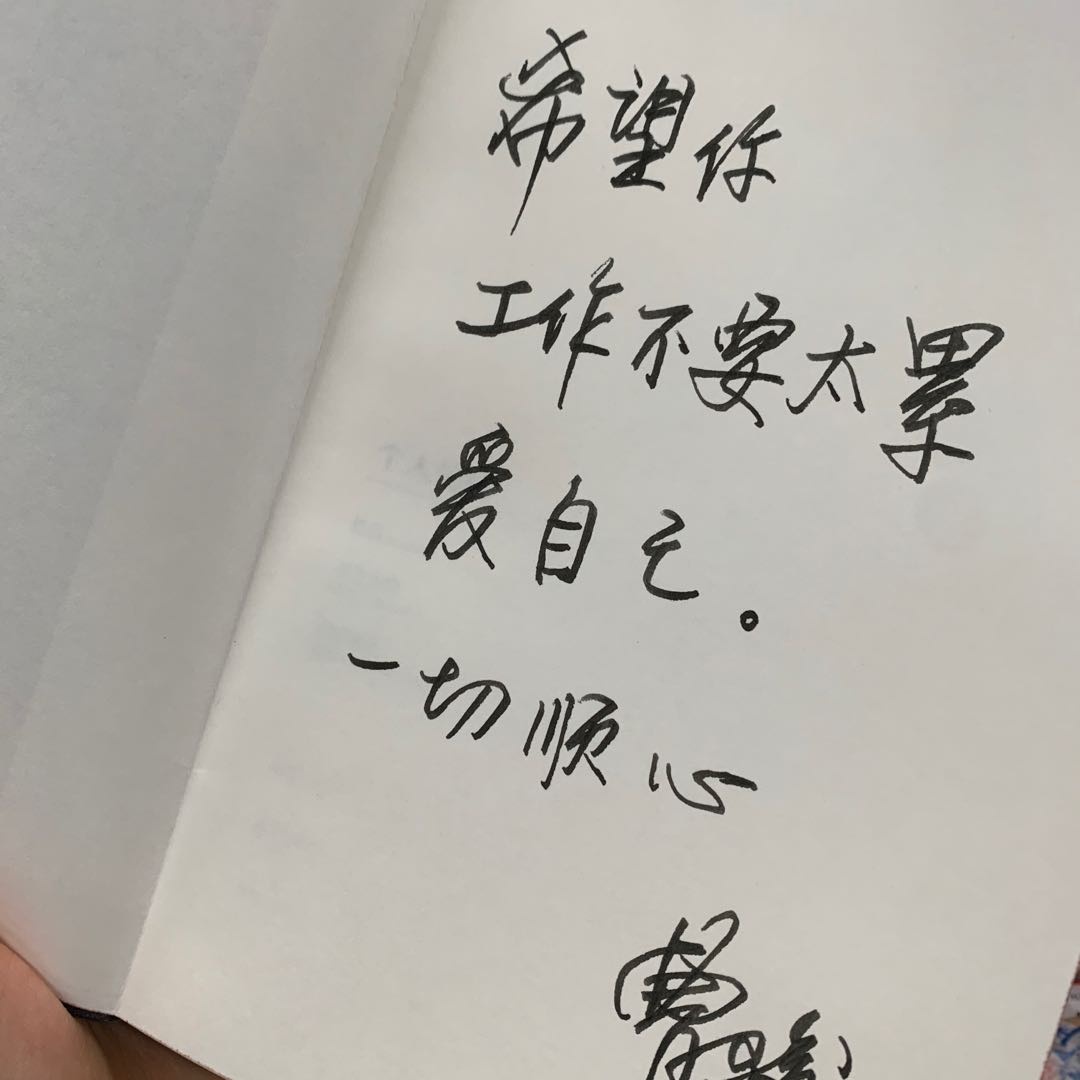 希望你
工作不要太累
爱自己。
一切顺心